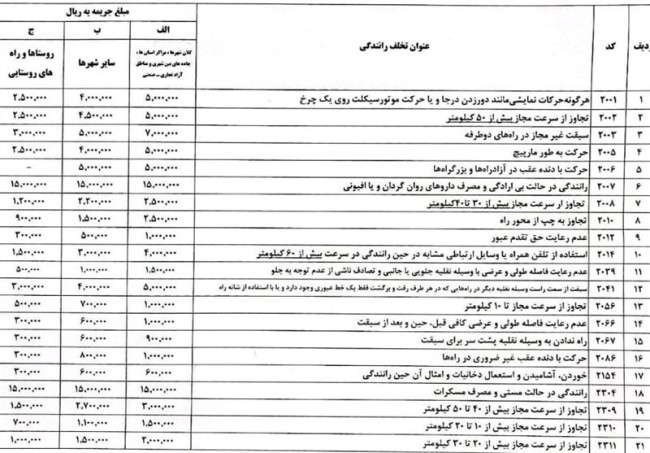 ردیف | کد | عنوان تخلف رانندگی | مبلغ جریمه به ریال
الف | ب | ج
کلان شهرها، مراکز استان ها، جاده های بین شهری و مناطق آزاد تجاری ــ صنعتی | سایر شهرها | روستاها و راه های روستایی
۱ | ۲۰۰۱ | هرگونه حرکات نمایشی مانند دورزدن درجا و یا حرکت موتورسیکلت روی یک چرخ | ۵,۰۰۰,۰۰۰ | ۴,۰۰۰,۰۰۰ | ۲,۵۰۰,۰۰۰
۲ | ۲۰۰۲ | تجاوز از سرعت مجاز بیش از ۵۰ کیلومتر | ۵,۰۰۰,۰۰۰ | ۴,۵۰۰,۰۰۰ | ۲,۵۰۰,۰۰۰
۳ | ۲۰۰۳ | سبقت غیر مجاز در راه‌های دوطرفه | ۷,۰۰۰,۰۰۰ | ۵,۰۰۰,۰۰۰ | ۳,۰۰۰,۰۰۰
۴ | ۲۰۰۵ | حرکت به طور مارپیچ | ۵,۰۰۰,۰۰۰ | ۴,۰۰۰,۰۰۰ | ۲,۵۰۰,۰۰۰
۵ | ۲۰۰۶ | حرکت با دنده عقب در آزادراه‌ها و بزرگراه‌ها | ۵,۰۰۰,۰۰۰ | ۵,۰۰۰,۰۰۰ | -
۶ | ۲۰۰۷ | رانندگی در حالت بی ارادگی و مصرف داروهای روان گردان و یا افیونی | ۱۵,۰۰۰,۰۰۰ | ۱۵,۰۰۰,۰۰۰ | ۱۵,۰۰۰,۰۰۰
۷ | ۲۰۰۸ | تجاوز از سرعت مجاز بیش از ۳۰ تا ۴۰ کیلومتر | ۲,۵۰۰,۰۰۰ | ۲,۲۰۰,۰۰۰ | ۱,۲۰۰,۰۰۰
۸ | ۲۰۱۰ | تجاوز به چپ از محور راه | ۲,۵۰۰,۰۰۰ | ۱,۵۰۰,۰۰۰ | ۹۰۰,۰۰۰
۹ | ۲۰۱۲ | عدم رعایت حق تقدم عبور | ۱,۰۰۰,۰۰۰ | ۵۰۰,۰۰۰ | ۳۰۰,۰۰۰
۱۰ | ۲۰۱۴ | استفاده از تلفن همراه یا وسایل ارتباطی مشابه در حین رانندگی در سرعت بیش از ۶۰ کیلومتر | ۴,۰۰۰,۰۰۰ | ۳,۰۰۰,۰۰۰ | ۱,۵۰۰,۰۰۰
۱۱ | ۲۰۳۹ | عدم رعایت فاصله طولی و عرضی با وسیله نقلیه جلویی یا جانبی و تصادف ناشی از عدم توجه به جلو | ۱,۵۰۰,۰۰۰ | ۱,۰۰۰,۰۰۰ | ۵۰۰,۰۰۰
۱۲ | ۲۰۴۱ | سبقت از سمت راست وسیله نقلیه دیگر در راه‌هایی که در هر طرف رفت و برگشت فقط یک خط عبوری وجود دارد و یا با استفاده از شانه راه | ۵,۰۰۰,۰۰۰ | ۴,۰۰۰,۰۰۰ | ۳,۰۰۰,۰۰۰
۱۳ | ۲۰۵۶ | تجاوز از سرعت مجاز تا ۱۰ کیلومتر | ۱,۰۰۰,۰۰۰ | ۷۰۰,۰۰۰ | ۵۰۰,۰۰۰
۱۴ | ۲۰۶۶ | عدم رعایت فاصله طولی و عرضی کافی قبل، حین و بعد از سبقت | ۱,۰۰۰,۰۰۰ | ۶۰۰,۰۰۰ | ۳۰۰,۰۰۰
۱۵ | ۲۰۶۷ | راه ندادن به وسیله نقلیه پشت سر برای سبقت | ۹۰۰,۰۰۰ | ۶۰۰,۰۰۰ | ۳۰۰,۰۰۰
۱۶ | ۲۰۸۶ | حرکت با دنده عقب غیر ضروری در راه‌ها | ۱,۰۰۰,۰۰۰ | ۸۰۰,۰۰۰ | ۳۰۰,۰۰۰
۱۷ | ۲۱۵۴ | خوردن، آشامیدن و استعمال دخانیات و امثال آن حین رانندگی | ۶۰۰,۰۰۰ | ۶۰۰,۰۰۰ | ۳۰۰,۰۰۰
۱۸ | ۲۳۰۴ | رانندگی در حالت مستی و مصرف مسکرات | ۱۵,۰۰۰,۰۰۰ | ۱۵,۰۰۰,۰۰۰ | ۱۵,۰۰۰,۰۰۰
۱۹ | ۲۳۰۹ | تجاوز از سرعت مجاز بیش از ۴۰ تا ۵۰ کیلومتر | ۳,۰۰۰,۰۰۰ | ۲,۷۰۰,۰۰۰ | ۱,۵۰۰,۰۰۰
۲۰ | ۲۳۱۰ | تجاوز از سرعت مجاز بیش از ۱۰ تا ۲۰ کیلومتر | ۱,۵۰۰,۰۰۰ | ۱,۱۰۰,۰۰۰ | ۷۰۰,۰۰۰
۲۱ | ۲۳۱۱ | تجاوز از سرعت مجاز بیش از ۲۰ تا ۳۰ کیلومتر | ۲,۰۰۰,۰۰۰ | ۱,۵۰۰,۰۰۰ | ۱,۰۰۰,۰۰۰